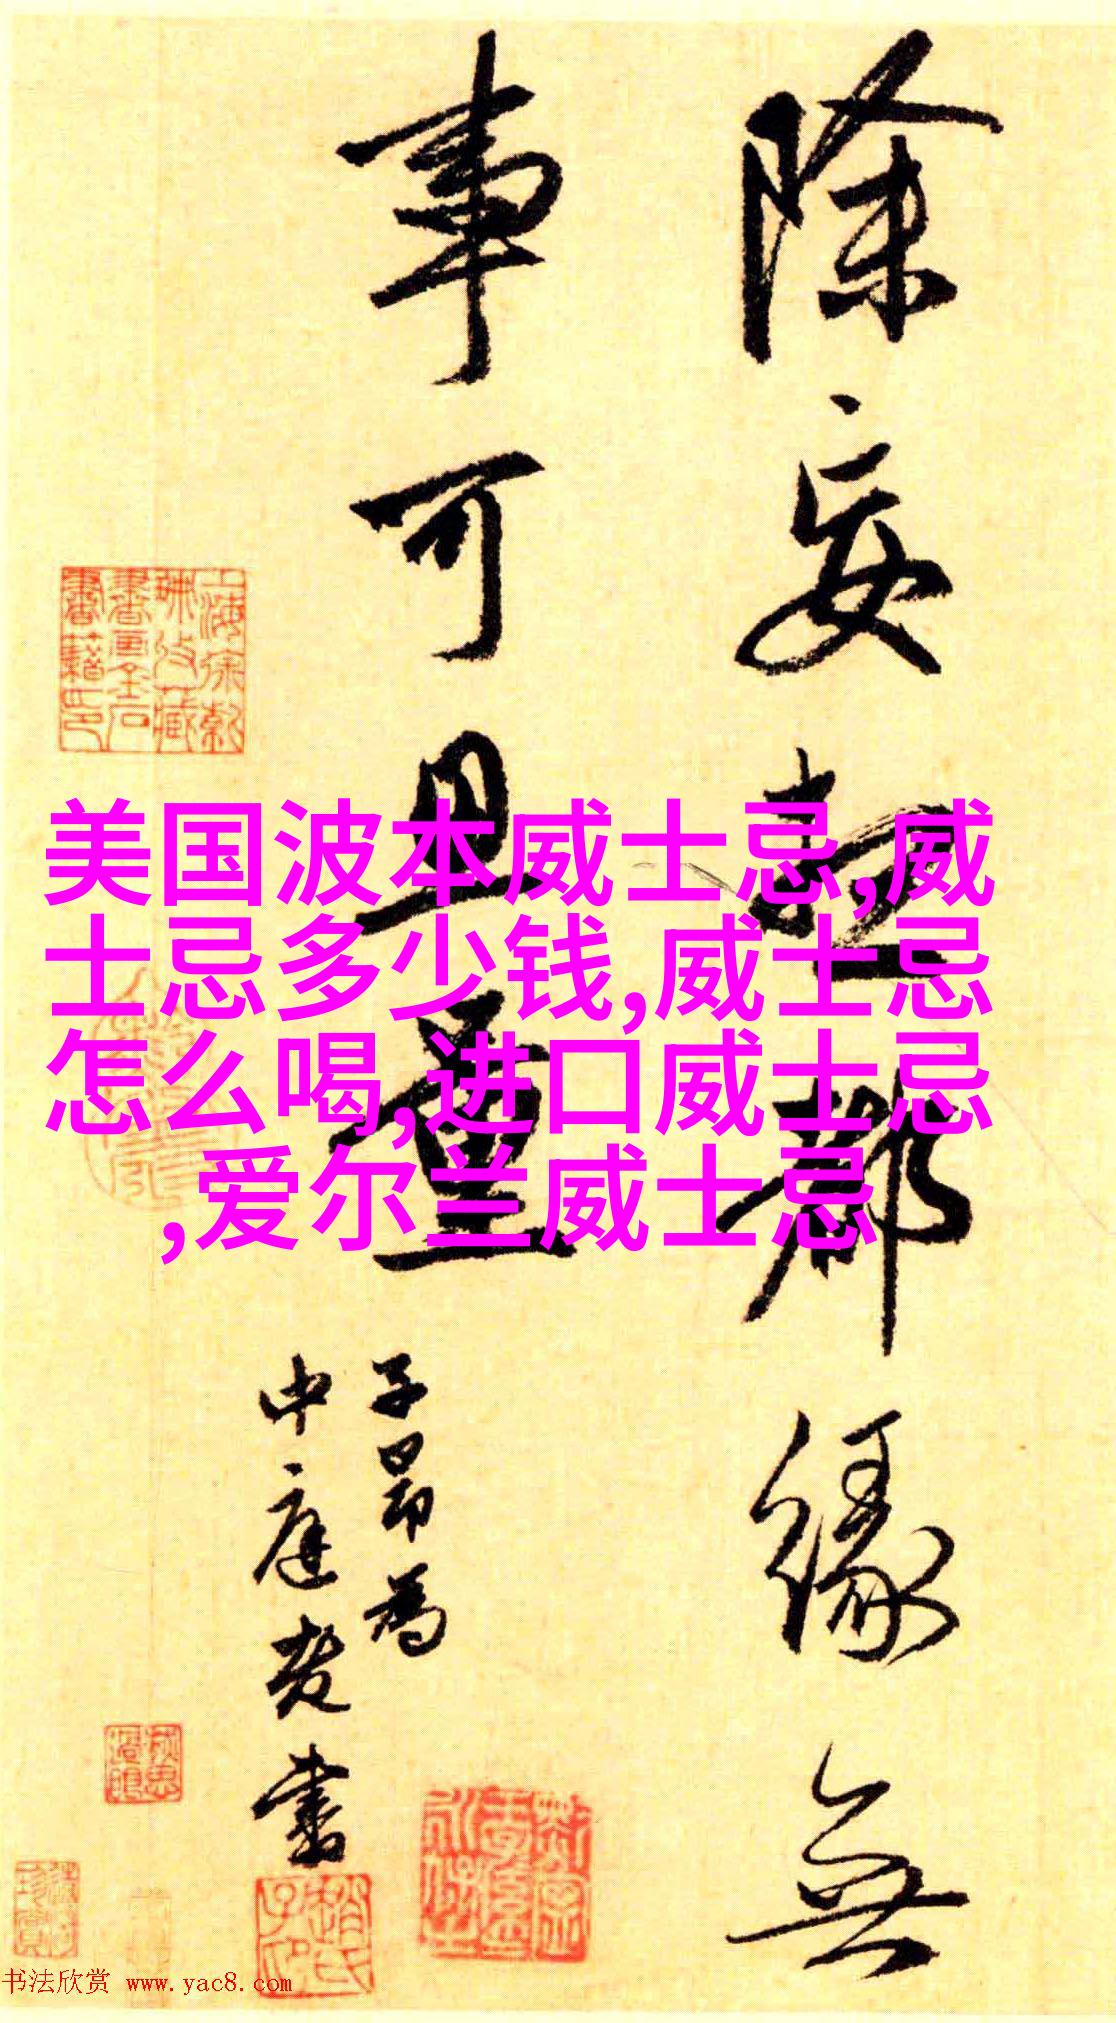 美国波本威士忌,威
士忌多少钱,威士忌
怎么喝,进口威士忌
,爱尔兰威士忌
除妄想都緣無
事可思量
子昂為
中庭老書
书法欣赏 www.yac8.com